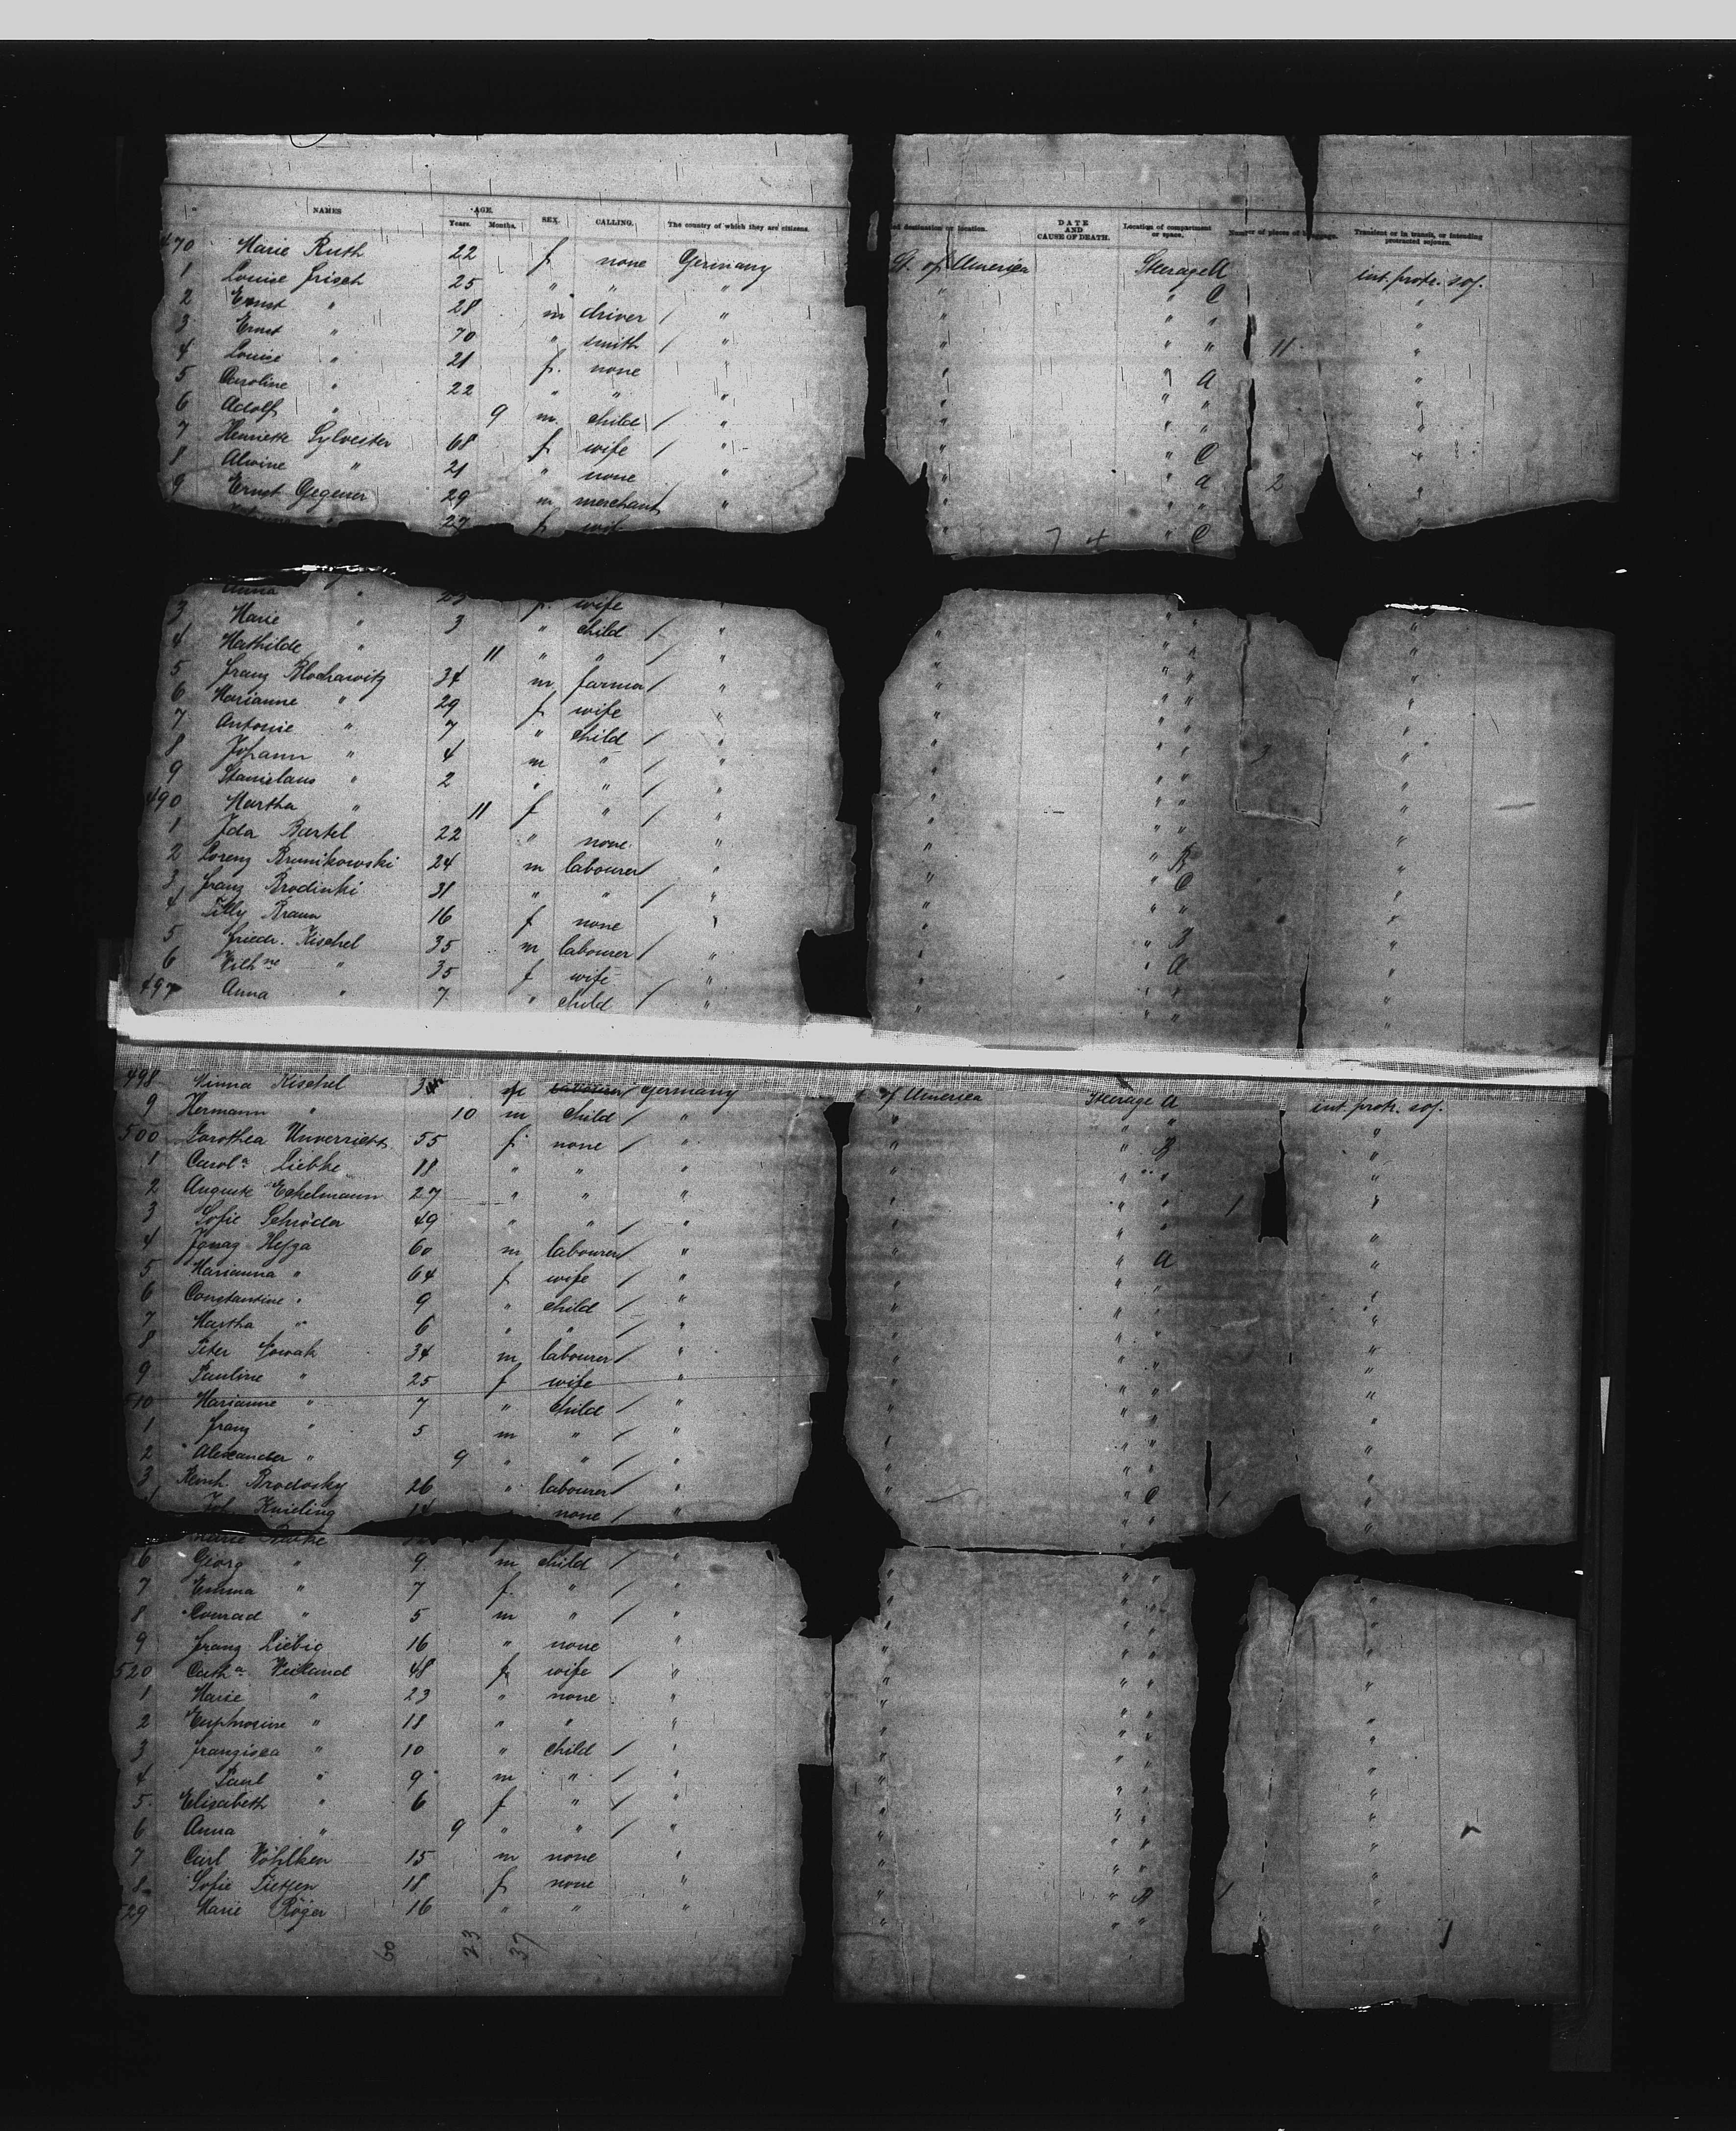 NAMES AGE. Years. Months. SEX. CALLING. The country of which they are citizens. destination or location. DATE AND CAUSE OF DEATH. Location of compartment or space. Number of pieces of baggage. Transient or in transit, or intending protracted sojourn.
470 Marie Ruth 22 f none Germany St. of America Steerage A int. protr. soj.
1 Louise Frisch 25 " " " " " C "
2 Ernst " 28 m driver / " " " " "
3 Ernst " 70 " smith / " " " " 11 "
4 Louise " 21 f. none " " " A "
5 Caroline " 22 " " " " " " "
6 Adolf " 9 m. child / " " " " "
7 Henriette Sylvester 68 f wife / " " " C "
8 Alwine " 21 " none " " " A 2 "
9 Ernst Gegener 29 m merchant " " " " "
27 f " " C
7 4
Anna " f. wife
3 Marie " 3 " child / " " " " "
4 Mathilde " 11 " " / " " " " "
5 Franz Blochawitz 34 m farmer / " " " " "
6 Marianne " 29 f wife " " " " "
7 Antonie " 7 " child / " " " " "
8 Johann " 4 m " / " " " " 3 "
9 Stanislaus " 2 " " / " " " " "
490 Martha " 11 f " / " " " " "
1 Ida Bartel 22 " none. " " " B "
2 Lorenz Brunikowski 24 m labourer / " " " C "
3 Franz Brodinski 31 " " / " " " " "
4 Tilly Braun 16 f none " " " B "
5 Friedr. Kischel 35 m labourer / " " " A "
6 Wilh ne " 35 f wife " " " " "
497 Anna " 7 " child / " " " " "
498 Minna Kischel 3 f / Germany of America Steerage A int. protr. soj.
9 Hermann " 10 m child / " " " " "
500 Dorothea Unverricht 55 f. none / " " " B "
1 Carol a Liebke 18 " " " " " " "
2 Auguste Eckelmann 27 " " " " " " 1 "
3 Sofie Schröder 49 " " / " " " " "
4 60 m labourer / " " " A "
5 Marianna " 64 f wife / " " " " "
6 Constantine " 9 " child / " " " " "
7 Martha " 6 " " / " " " " "
8 Peter Nowak 34 m labourer / " " " " "
9 Pauline " 25 f wife " " " " "
510 Marianne " 7 " child / " " " " "
1 Franz " 5 m " / " " " " "
2 Alexander " 9 " " / " " " " "
3 Reinh. Brodosky 26 " labourer / " " " C 1 "
Joh. Knieling 14 " none / " " " " "
Marie
6 Georg " 9 m child / " " " " "
7 Emma " 7 f. " / " " " " "
8 Conrad " 5 m " / " " " " "
9 Franz Liebig 16 " none " " " " "
520 Cath a Weiland 48 f wife / " " " " "
1 Marie " 23 " none " " " " "
2 Euphrosine " 18 " " " " " " "
3 Franzisca " 10 " child / " " " " "
4 Paul " 9 m " / " " " " "
5 Elisabeth " 6 f " / " " " " "
6 Anna " 9 " " / " " " " "
7 Carl Wöhlken 15 m none " " " " "
8 Sofie Tietjen 18 f none " " " B 1 "
529 Marie Röger 16 " " " " " " "
60 23 37